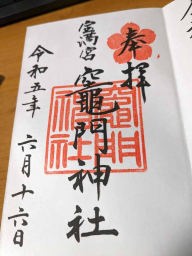 奉拝
宝満宮
竈門神社
令和五年
六月十六日
竈門
神社